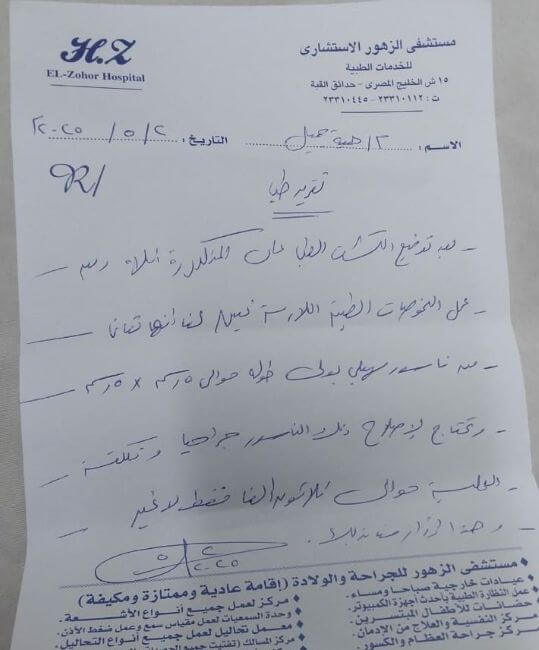 H.Z
EL-Zohor Hospital
مستشفى الزهور الاستشارى
للخدمات الطبية
١٥ ش الخليج المصرى - حدائق القبة
ت : ٢٣٣١٠١١٢ - ٢٣٣١٠٤٤٥
الاسم : جميل
التاريخ : ٢ / ٥ / ٢٠٢٥
R/
تقرير طبى
- بعد توقيع الكشف الطبى على المذكورة أعلاه وبعد
- عمل الفحوصات الطبية اللازمة تبين لنا أنها تعانى
- من ناسور مهبلى بولى طوله حوالى ٥ر٣ × ٥ر٣
- وتحتاج لإصلاح ذلك الناسور جراحيا وتكلفة
- العملية حوالى ثلاثون الفا فقط لا غير
- وهذا إقرار منا بذلك.
٢/٥
٢٠٢٥
• مستشفى الزهور للجراحة والولادة (إقامة عادية وممتازة ومكيفة)
• عيادات خارجية صباحا ومساء.
• عمل النظارة الطبية بأحدث أجهزة الكمبيوتر.
• حضانات للأطفال المبتسرين.
مركز النفسية والعلاج من الإدمان.
مركز جراحة العظام والكسور
• مركز لعمل جميع أنواع الأشعة.
وحدة السمعيات لعمل مقياس سمع وعمل ضغط الأذن.
• معمل تحاليل لعمل جميع أنواع التحاليل.
مركز المسالك (تفتيت جميع